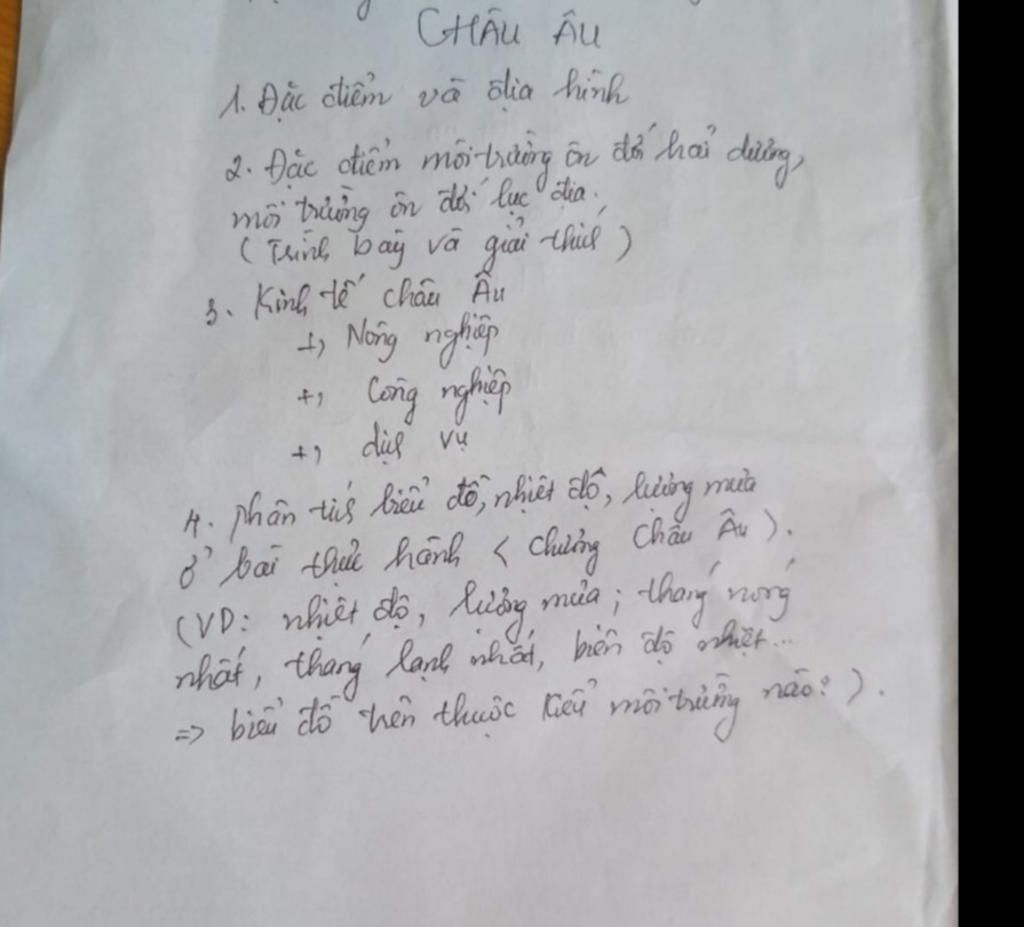 CHÂU ÂU
1. Đặc điểm và địa hình
2. Đặc điểm môi trường ôn đới hải dương,
môi trường ôn đới lục địa.
(Trình bày và giải thích)
3. Kinh tế châu Âu
+, Nông nghiệp
+, Công nghiệp
+, dịch vụ
4. phân tích biểu đồ, nhiệt độ, lượng mưa
ở bài thực hành < chương Châu Âu ).
(VD: nhiệt độ, lượng mưa; tháng nóng
nhất, tháng lạnh nhất, biên độ nhiệt...
=> biểu đồ trên thuộc kiểu môi trường nào? ).